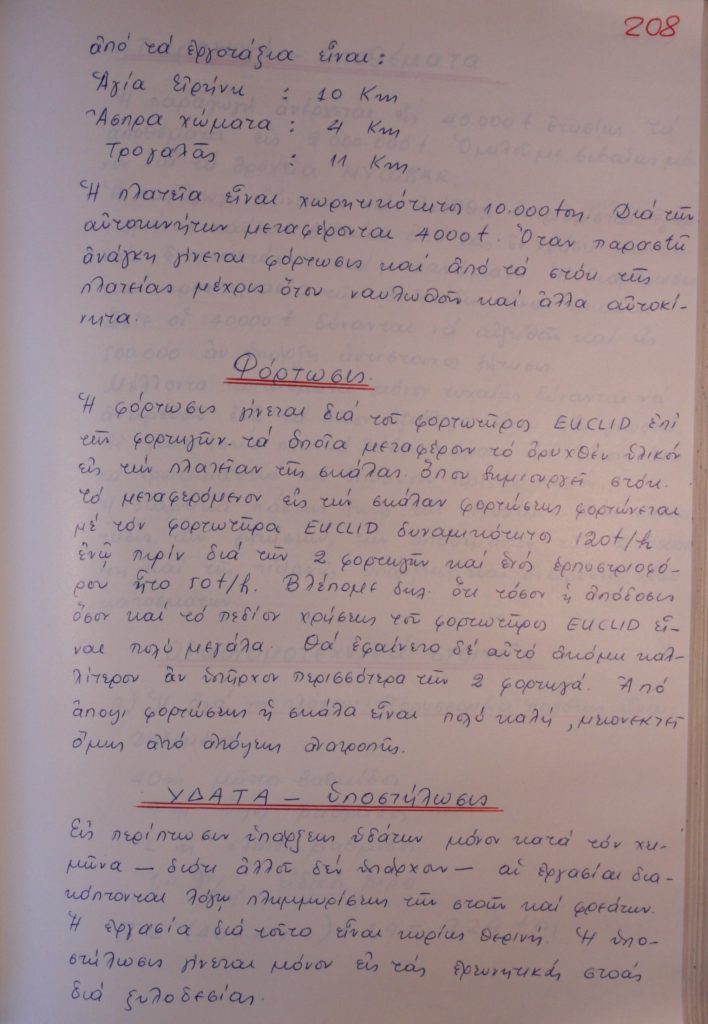 208
ἀπό τά ἐργοτάξια εἶναι:
Ἁγία Εἰρήνη : 10 Km
Ἄσπρα χώματα : 4 Km
Τρογαλᾶς : 11 Km
Ἡ πλατεῖα εἶναι χωρητικότητος 10.000 ton. Διά τῶν
αὐτοκινήτων μεταφέρονται 4000 t. Ὅταν παραστῆ
ἀνάγκη γίνεται φόρτωσις καί ἀπό τά στόκ τῆς
πλατείας μέχρις ὅτου ναυλωθοῦν καί ἄλλα αὐτοκί-
νητα.
Φόρτωσις.
Ἡ φόρτωσις γίνεται διά τοῦ φορτωτῆρος EUCLID ἐπί
τῶν φορτηγῶν. τά ὁποῖα μεταφέρουν τό ὀρυχθέν ὑλικόν
εἰς τήν πλατεῖαν τῆς σκάλας ὅπου δημιουργεῖ στόκ.
Τό μεταφερόμενον εἰς τήν σκάλαν φορτώσεως φορτώνεται
μέ τόν φορτωτῆρα EUCLID δυναμικότητος 120 t/h
ἐνῶ πρίν διά τῶν 2 φορτηγῶν καί ἑνός ἐρπυστριοφό-
ρου ἦτο 50 t/h. Βλέπομε δηλ. ὅτι τόσον ἡ ἀπόδοσις
ὅσον καί τό πεδίον χρήσεως τοῦ φορτωτῆρος EUCLID εἶ-
ναι πολύ μεγάλα. Θά ἐφαίνετο δέ αὐτό ἀκόμη καλ-
λίτερον ἄν ὑπῆρχον περισσότερα τῶν 2 φορτηγά. Ἀπό
ἄποψι φορτώσεως ἡ σκάλα εἶναι πολύ καλή, μειονεκτεῖ
ὅμως ἀπό ἀπόψεως ἀνατροπῆς.
ΥΔΑΤΑ – ὑποστήλωσις
Εἰς περίπτωσιν ὑπάρξεως ὑδάτων μόνον κατά τόν χει-
μῶνα – διότι ἄλλοῦ δέν ὑπάρχουν – αἱ ἐργασίαι δια-
κόπτονται λόγῳ πλημμυρίσεως τῶν στοῶν καί φρεάτων.
Ἡ ἐργασία διά τοῦτο εἶναι κυρίως θερινή. Ἡ ὑπο-
στήλωσις γίνεται μόνον εἰς τάς ἐρευνητικάς στοάς
διά ξυλοδεσίας.